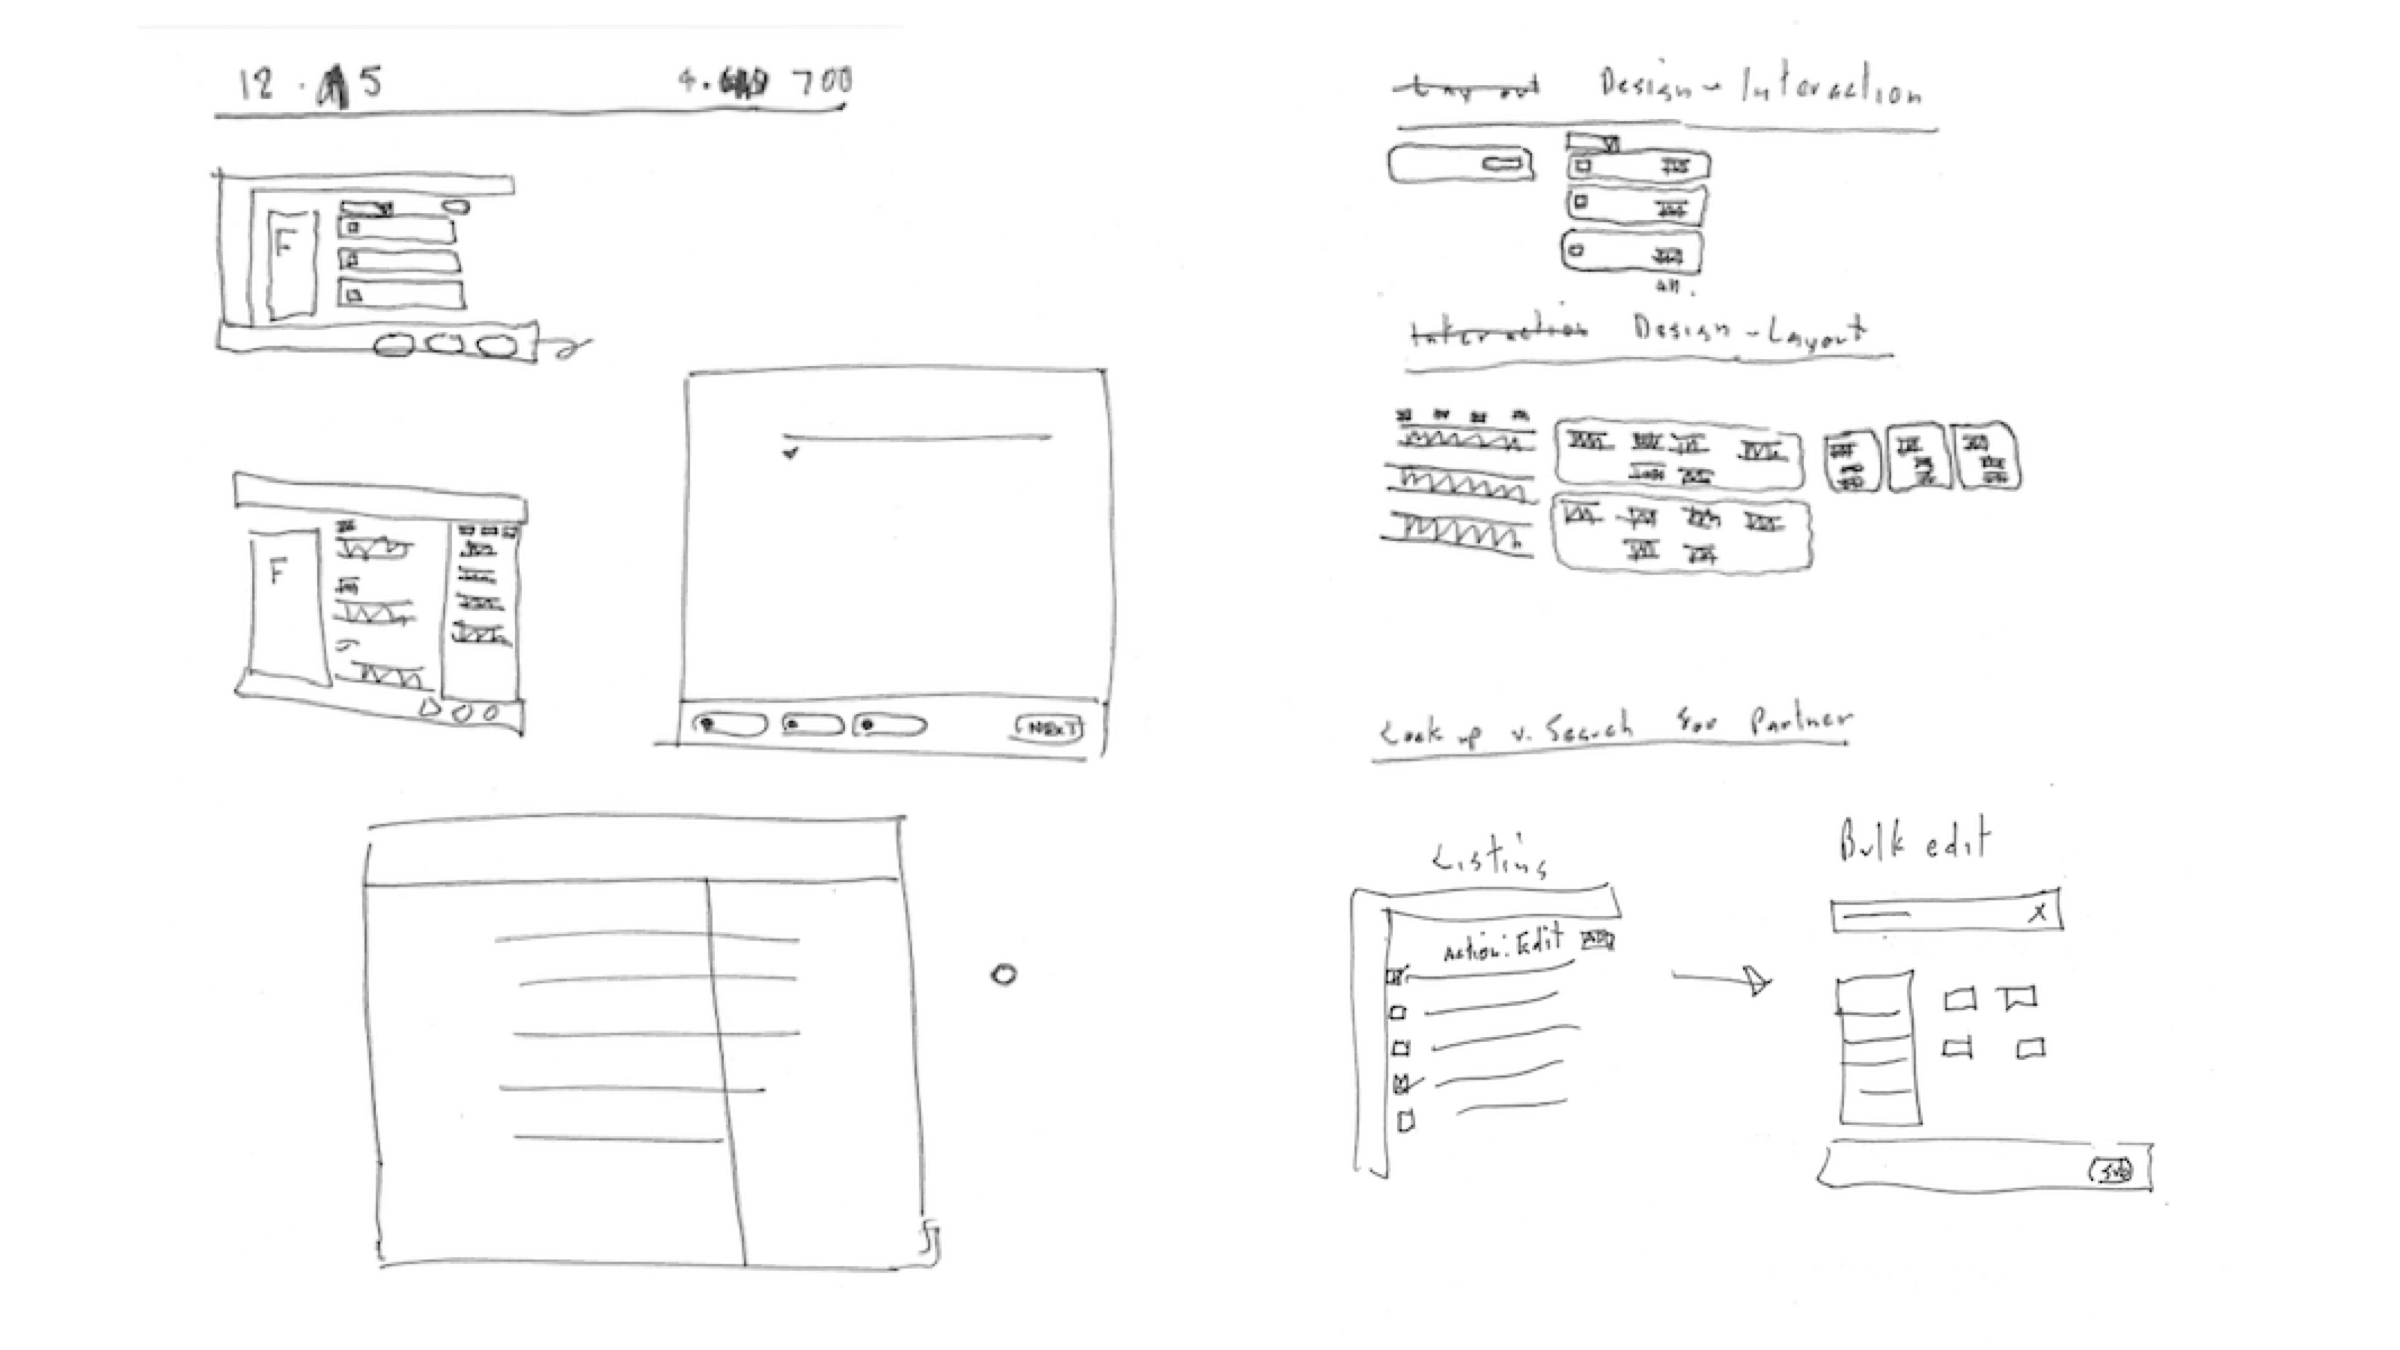 12 . 5
4. 700
F
F
NEXT
Layout Design - Interaction
all.
Interaction Design - Layout
Look up v. Search for Partner
Listing
Bulk edit
Action: Edit
X